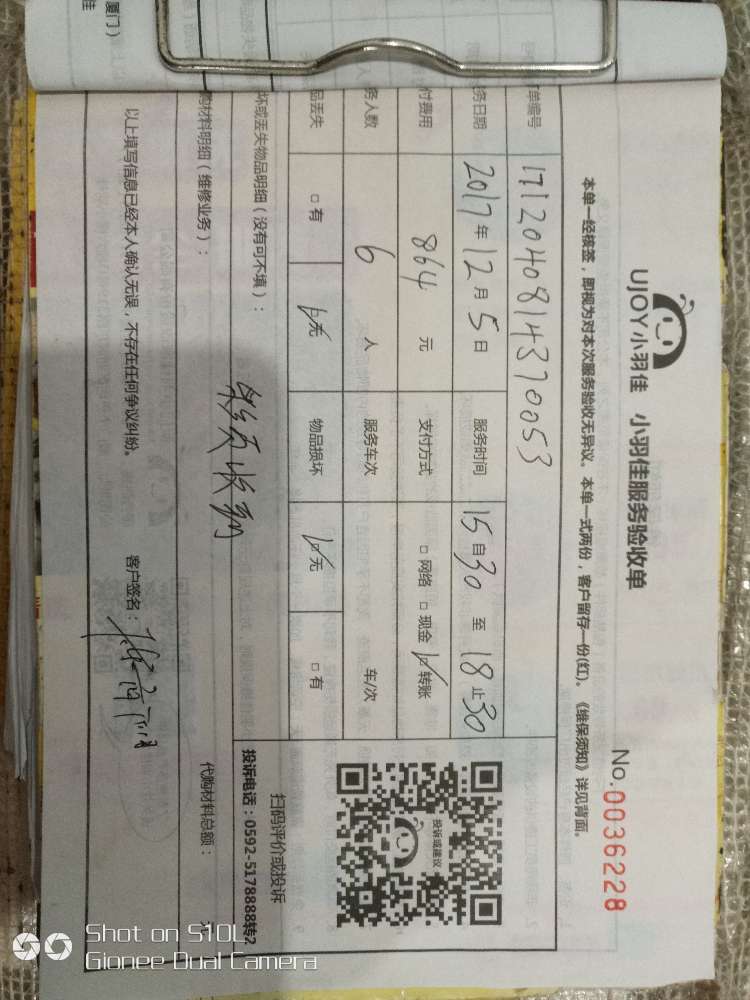 厦门）
佳
UJOY小羽佳 小羽佳服务验收单
No.0036228
本单一经核签，即视为对本次服务验收无异议。本单一式两份，客户留存一份(红)。《维保须知》详见背面。
单编号 1712040814370053
务日期 2017年12月5日 服务时间 15自30至18止30
付费用 864元 支付方式 □网络 □现金 ☑转账
务人数 6人 服务车次 车/次
品丢失 □有 ☑无 物品损坏 ☑无 □有
投诉或建议
扫码评价或投诉
投诉电话：0592-5178888转2
坏或丢失物品明细（没有可不填）：
购材料明细（维修业务）： 代购材料总额： 元
以上填写信息已经本人确认无误，不存在任何争议纠纷。 客户签名：
Shot on S10L
Gionee Dual Camera